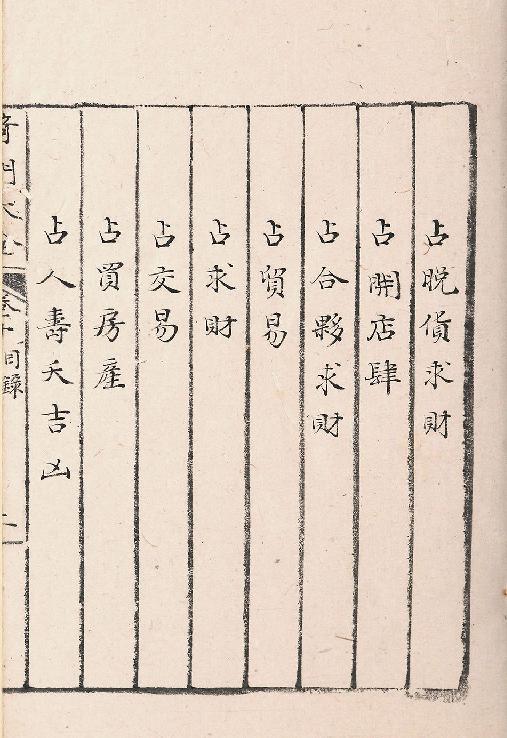 占脫貨求財
占開店肆
占合夥求財
占貿易
占求財
占交易
占買房產
占人壽夭吉凶
奇門大
目錄